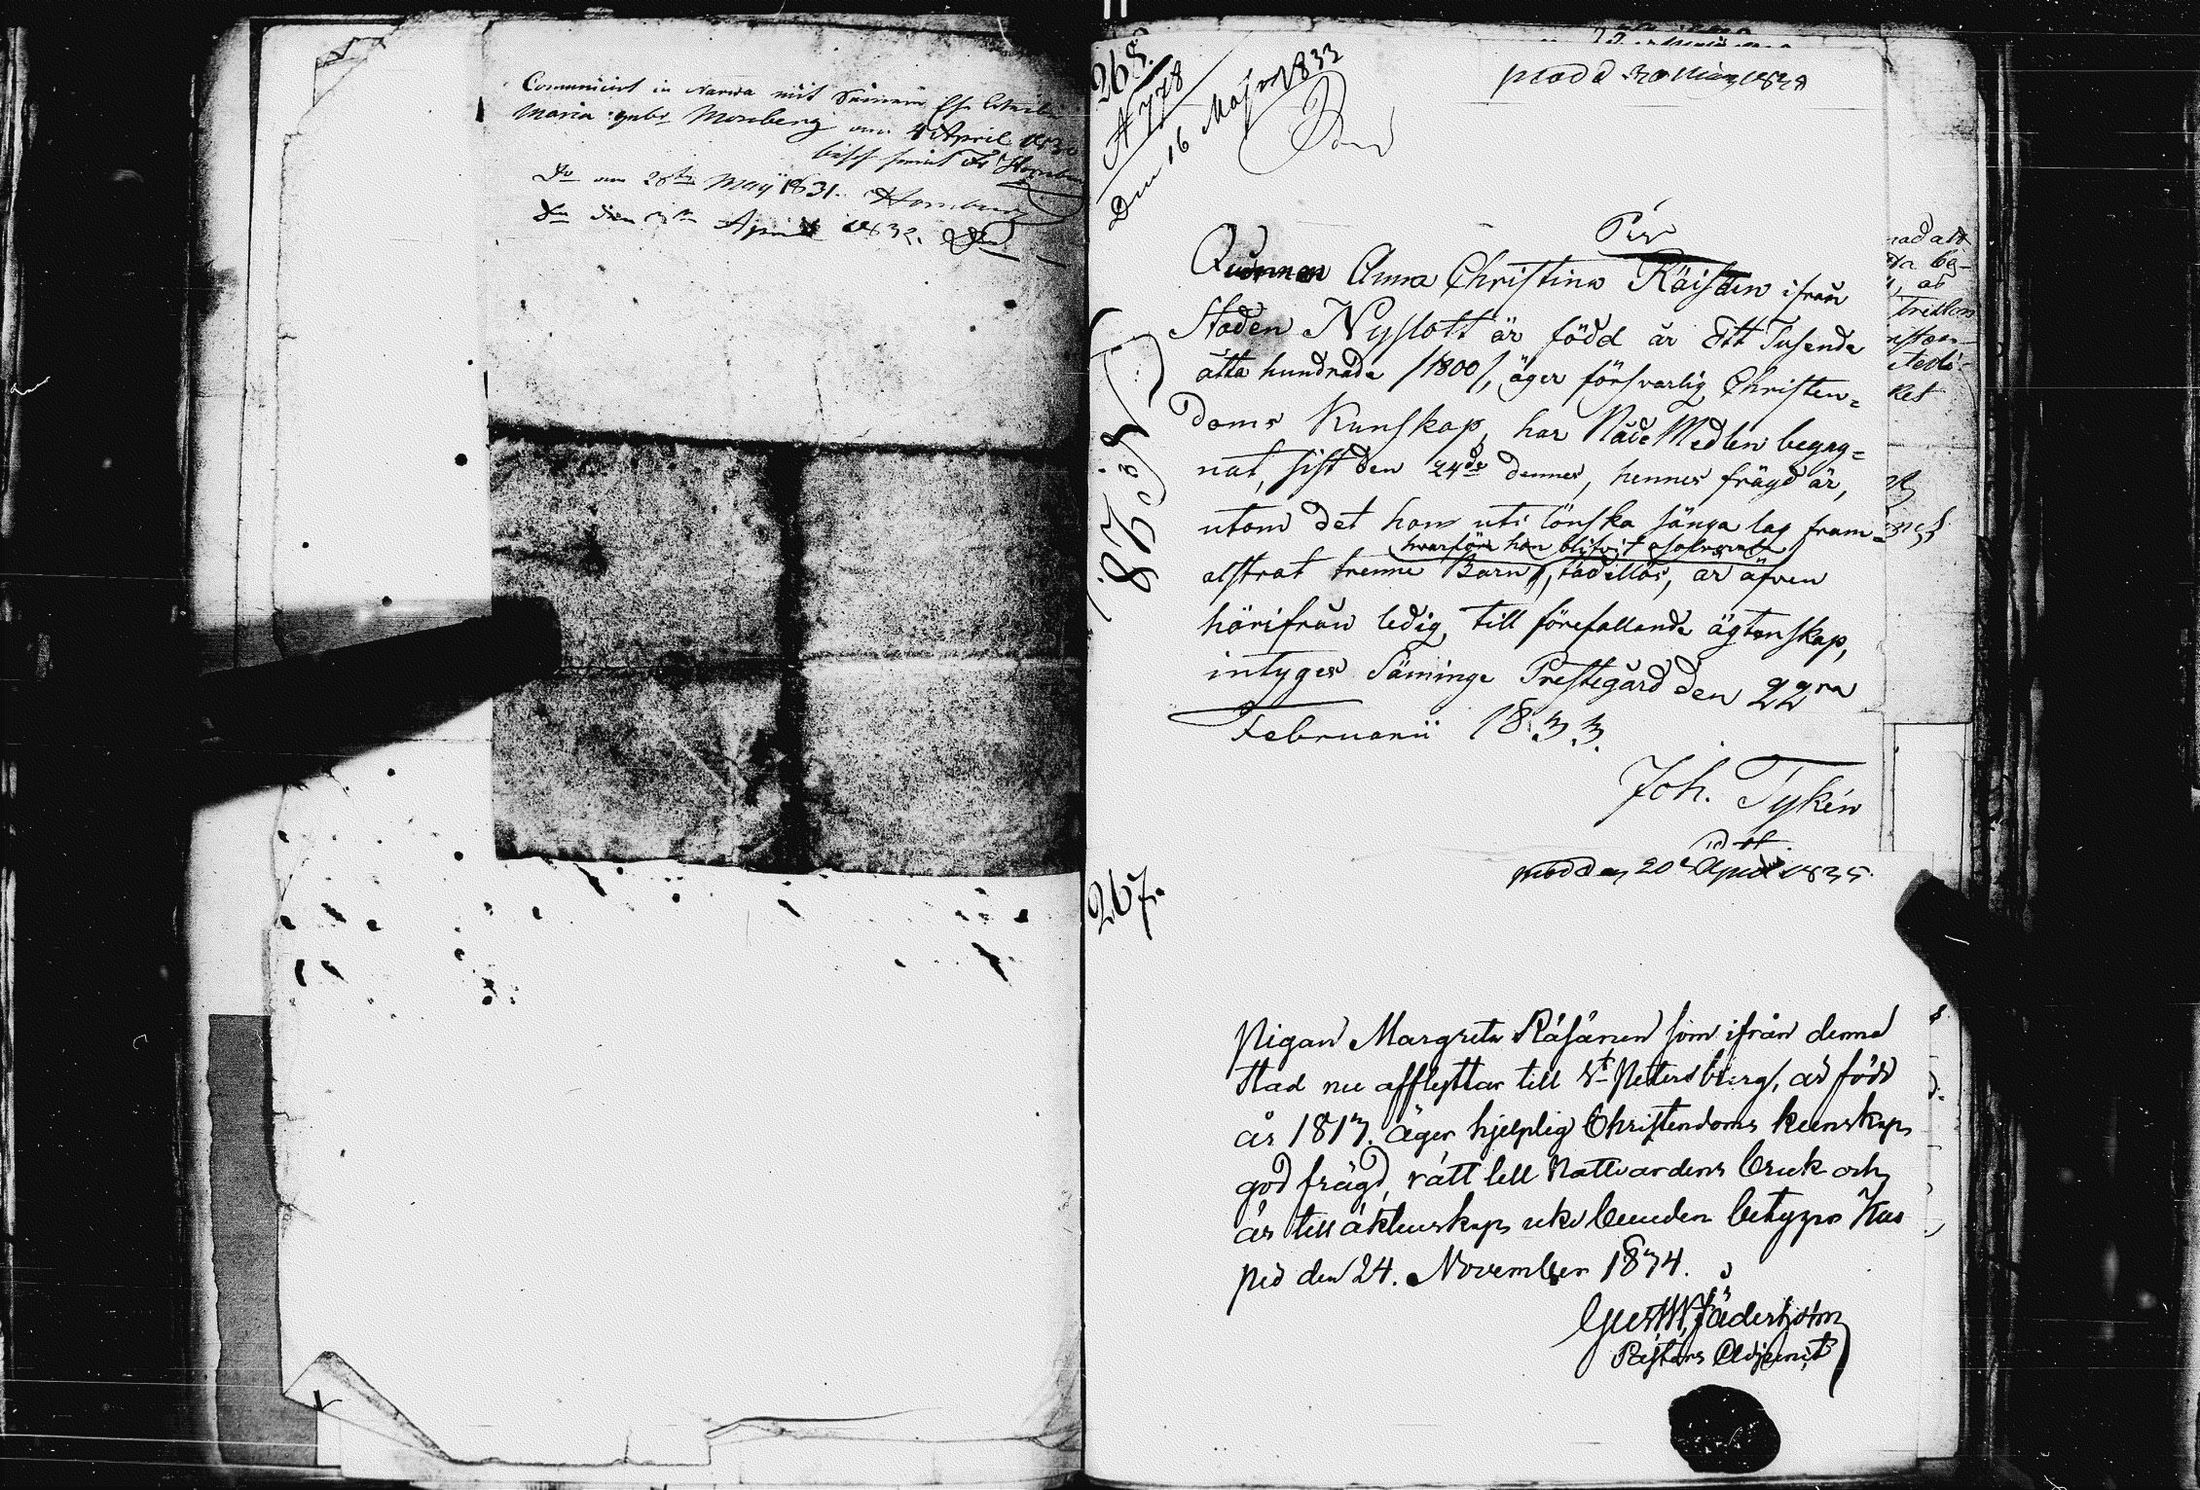 Communicirt in Narwa mit Seinem
Maria gebr. Morberg am 4 April 1830
Do am 28ten May 1831. Hornburg
Do den April 1832.
268.
N 778
Den 16 Maj 1833
1838
Pig
Anna Christina Räisten ifrån
Staden Nyslott är född år Ett Tusende
åtta hundrade /1800/, äger försvarlig Christen=
doms Kunskap, har Nåde Medlen begag=
nat, sist den 24de dennes, hennes frägd är,
utom det hon uti lönska sänga lag fram=
hvarföre hon blifvit
alstrat trenne Barn, tadellös, är äfven
härifrån ledig till förefallande ägtenskap,
intygar Säminge Prestegård den 22ra
Februarii 1833.
Joh. Tykén
1835
267.
den 20 April 1835.
Pigan Margreta Räsänen som ifrån denna
Stad nu afflyttar till St Petersburg, är född
år 1817. äger hjelplig Christendoms kunskap,
god frägd, rätt till Nattvardens bruk och
är till äktenskap obunden betygar Kuo
pio den 24. November 1834.
Gust. W. Fäderholm
Pastors Adjunct